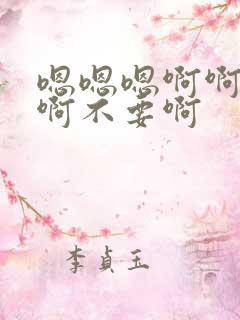 嗯嗯嗯啊啊
啊不要啊
李贞玉